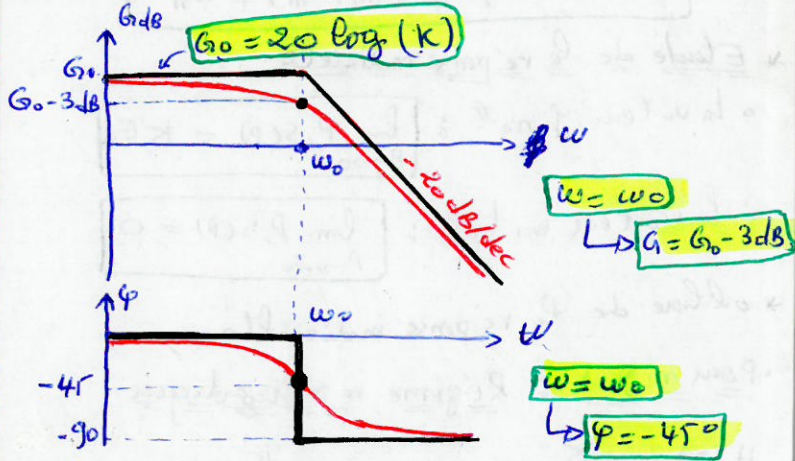 GdB
G₀ = 20 log (K)
G₀
G₀-3dB
ω₀
ω
-20dB/dec
ω = ω₀
G = G₀-3dB
φ
ω₀
ω
-45
-90
ω = ω₀
φ = -45°